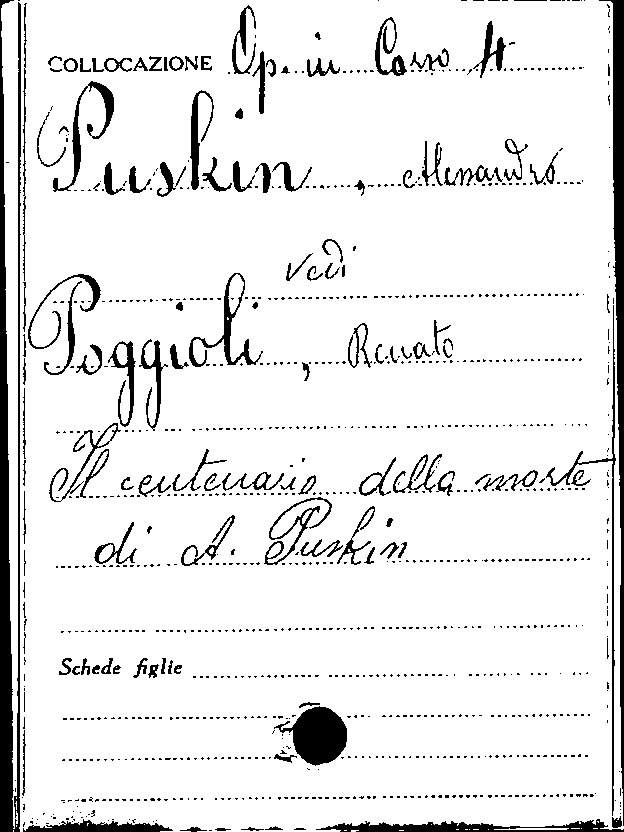 COLLOCAZIONE Op. in Corso 4
Puskin, Alessandro
vedi
Poggioli, Renato
Il centenario della morte
di A. Puskin
Schede figlie